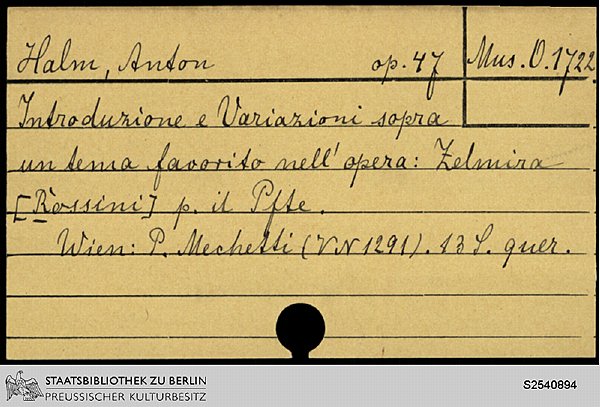 Halm, Anton op. 47 Mus. O. 1722
Introduzione e Variazioni sopra
un tema favorito nell' opera: Zelmira
[Rossini] p. il Pfte.
Wien: P. Mechetti (VN 1291). 13 S. quer.
STAATSBIBLIOTHEK ZU BERLIN
PREUSSISCHER KULTURBESITZ
S2540894